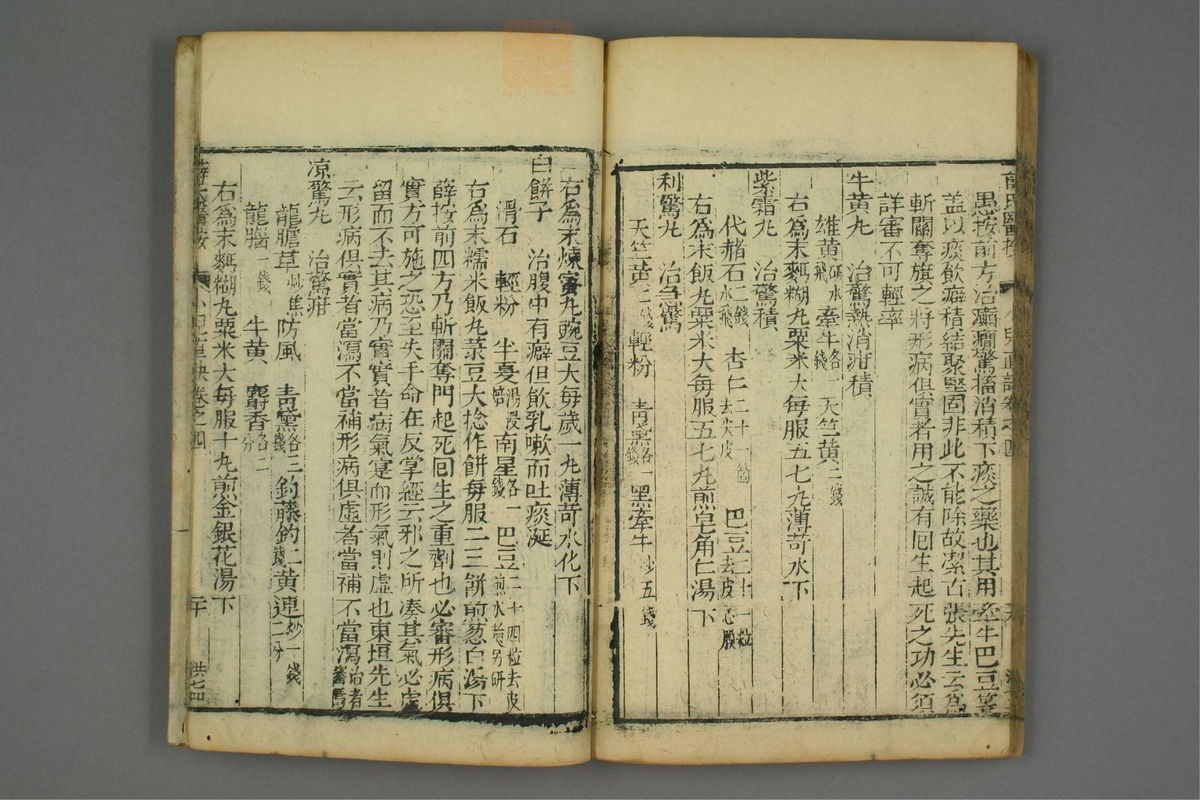 愚按前方治癲癇驚搐消積下痰之藥也其用牽牛巴豆等
盖以痰飲癖積結聚堅固非此不能除故潔古張先生云為
斬關奪旗之將形病俱實者用之誠有囘生起死之功必須
詳審不可輕率
牛黃丸 治驚熱消疳積
雄黃研水飛 牽牛各一錢 天竺黃二錢
右為末麪糊丸粟米大每服五七丸薄荷水下
紫霜丸 治驚積
代赭石二錢水飛 杏仁二十一箇去尖皮 巴豆二十一粒去皮心膜
右為末飯丸粟米大每服五七丸煎皂角仁湯下
利驚丸 治急驚
天竺黃二錢 輕粉 靑黛各一錢 黑牽牛炒五錢
右為末煉蜜丸豌豆大每歲一丸薄荷水化下
白餅子 治腹中有癖但飲乳嗽而吐痰涎
滑石 輕粉 半夏湯浸 南星各一錢 巴豆二十四粒去皮煎水黃另研
右為末糯米飯丸菉豆大捻作餅每服二三餅煎葱白湯下
薛按前四方乃斬關奪門起死囘生之重劑也必審形病俱
實方可施之恐至失手命在反掌經云邪之所凑其氣必虛
留而不去其病乃實實者病氣寔而形氣則虛也東垣先生
云形病俱實者當瀉不當補形病俱虛者當補不當瀉治者
凉驚丸 治驚疳
龍膽草炒焦 防風 靑黛各三錢 釣藤鈎二錢 黃連炒一錢二分
龍腦一錢 牛黃 麝香各二分
右為末麪糊丸粟米大每服十丸煎金銀花湯下
卷之四 二十 洪七四